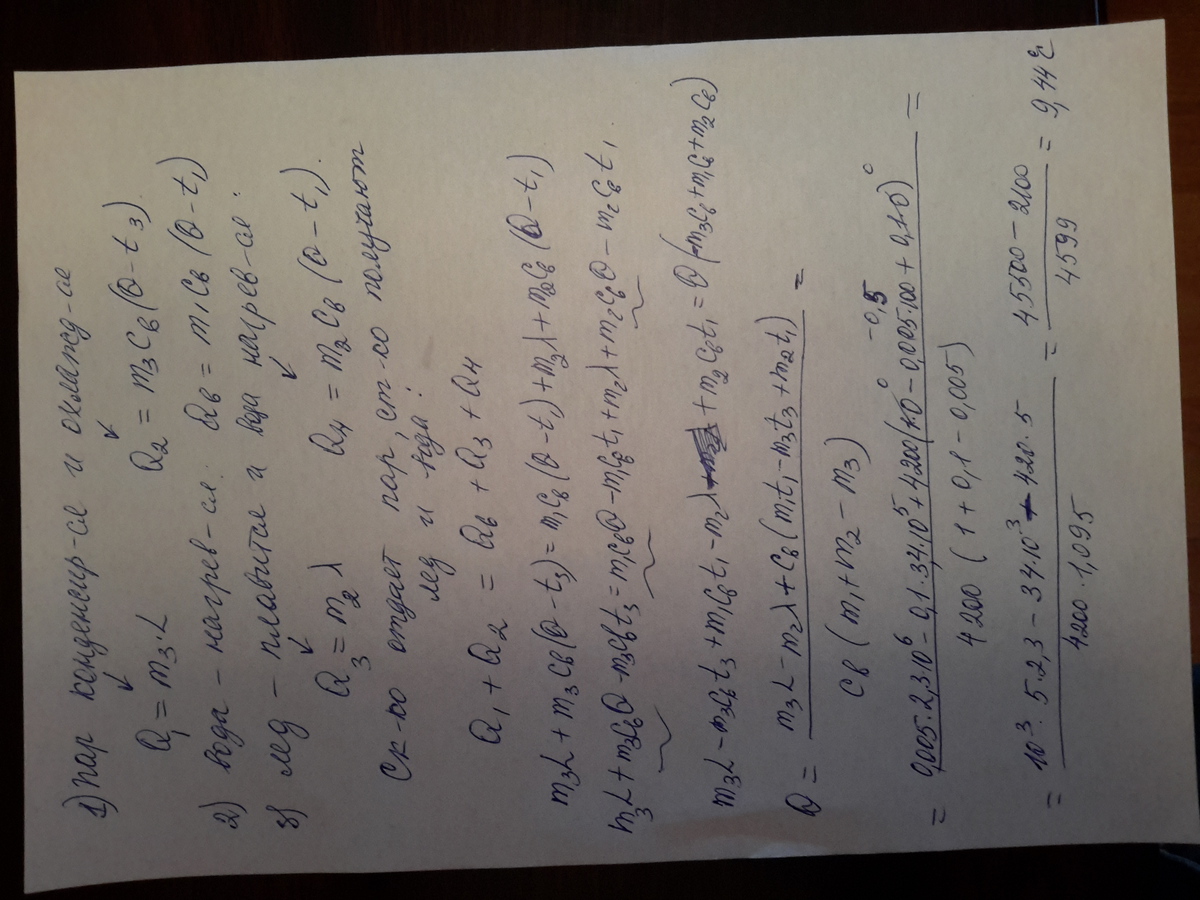 1) пар конденсир-ся и охлажд-ся
Q₁ = m₃·L Q₂ = m₃cв(Θ-t₃)
2) вода - нагрев-ся. Qв = m₁cв(Θ-t₁)
3) лёд - плавится и вода нагрев-ся:
Q₃ = m₂λ Q₄ = m₂cв(Θ-t₁).
Ск-ко отдаёт пар, ст-ко получают
лёд и вода:
Q₁ + Q₂ = Qв + Q₃ + Q₄
m₃L + m₃cв(Θ-t₃) = m₁cв(Θ-t₁) + m₂λ + m₂cв(Θ-t₁)
m₃L + m₃cвΘ - m₃cвt₃ = m₁cвΘ - m₁cвt₁ + m₂λ + m₂cвΘ - m₂cвt₁.
m₃L - m₃cвt₃ + m₁cвt₁ - m₂λ + m₂cвt₁ = Θ(-m₃cв + m₁cв + m₂cв)
Θ = (m₃L - m₂λ + cв(m₁t₁ - m₃t₃ + m₂t₁)) / (cв(m₁ + m₂ - m₃)) =
= (0,005·2,3·10⁶ - 0,1·3,4·10⁵ + 4200(1·0 - 0,005·100 + 0,1·0)) / (4200(1 + 0,1 - 0,005)) =
0 -0,5 0
= (10³·5·2,3 - 34·10³ + 420·5) / (4200·1,095) = (45500 - 2100) / 4599 = 9,44